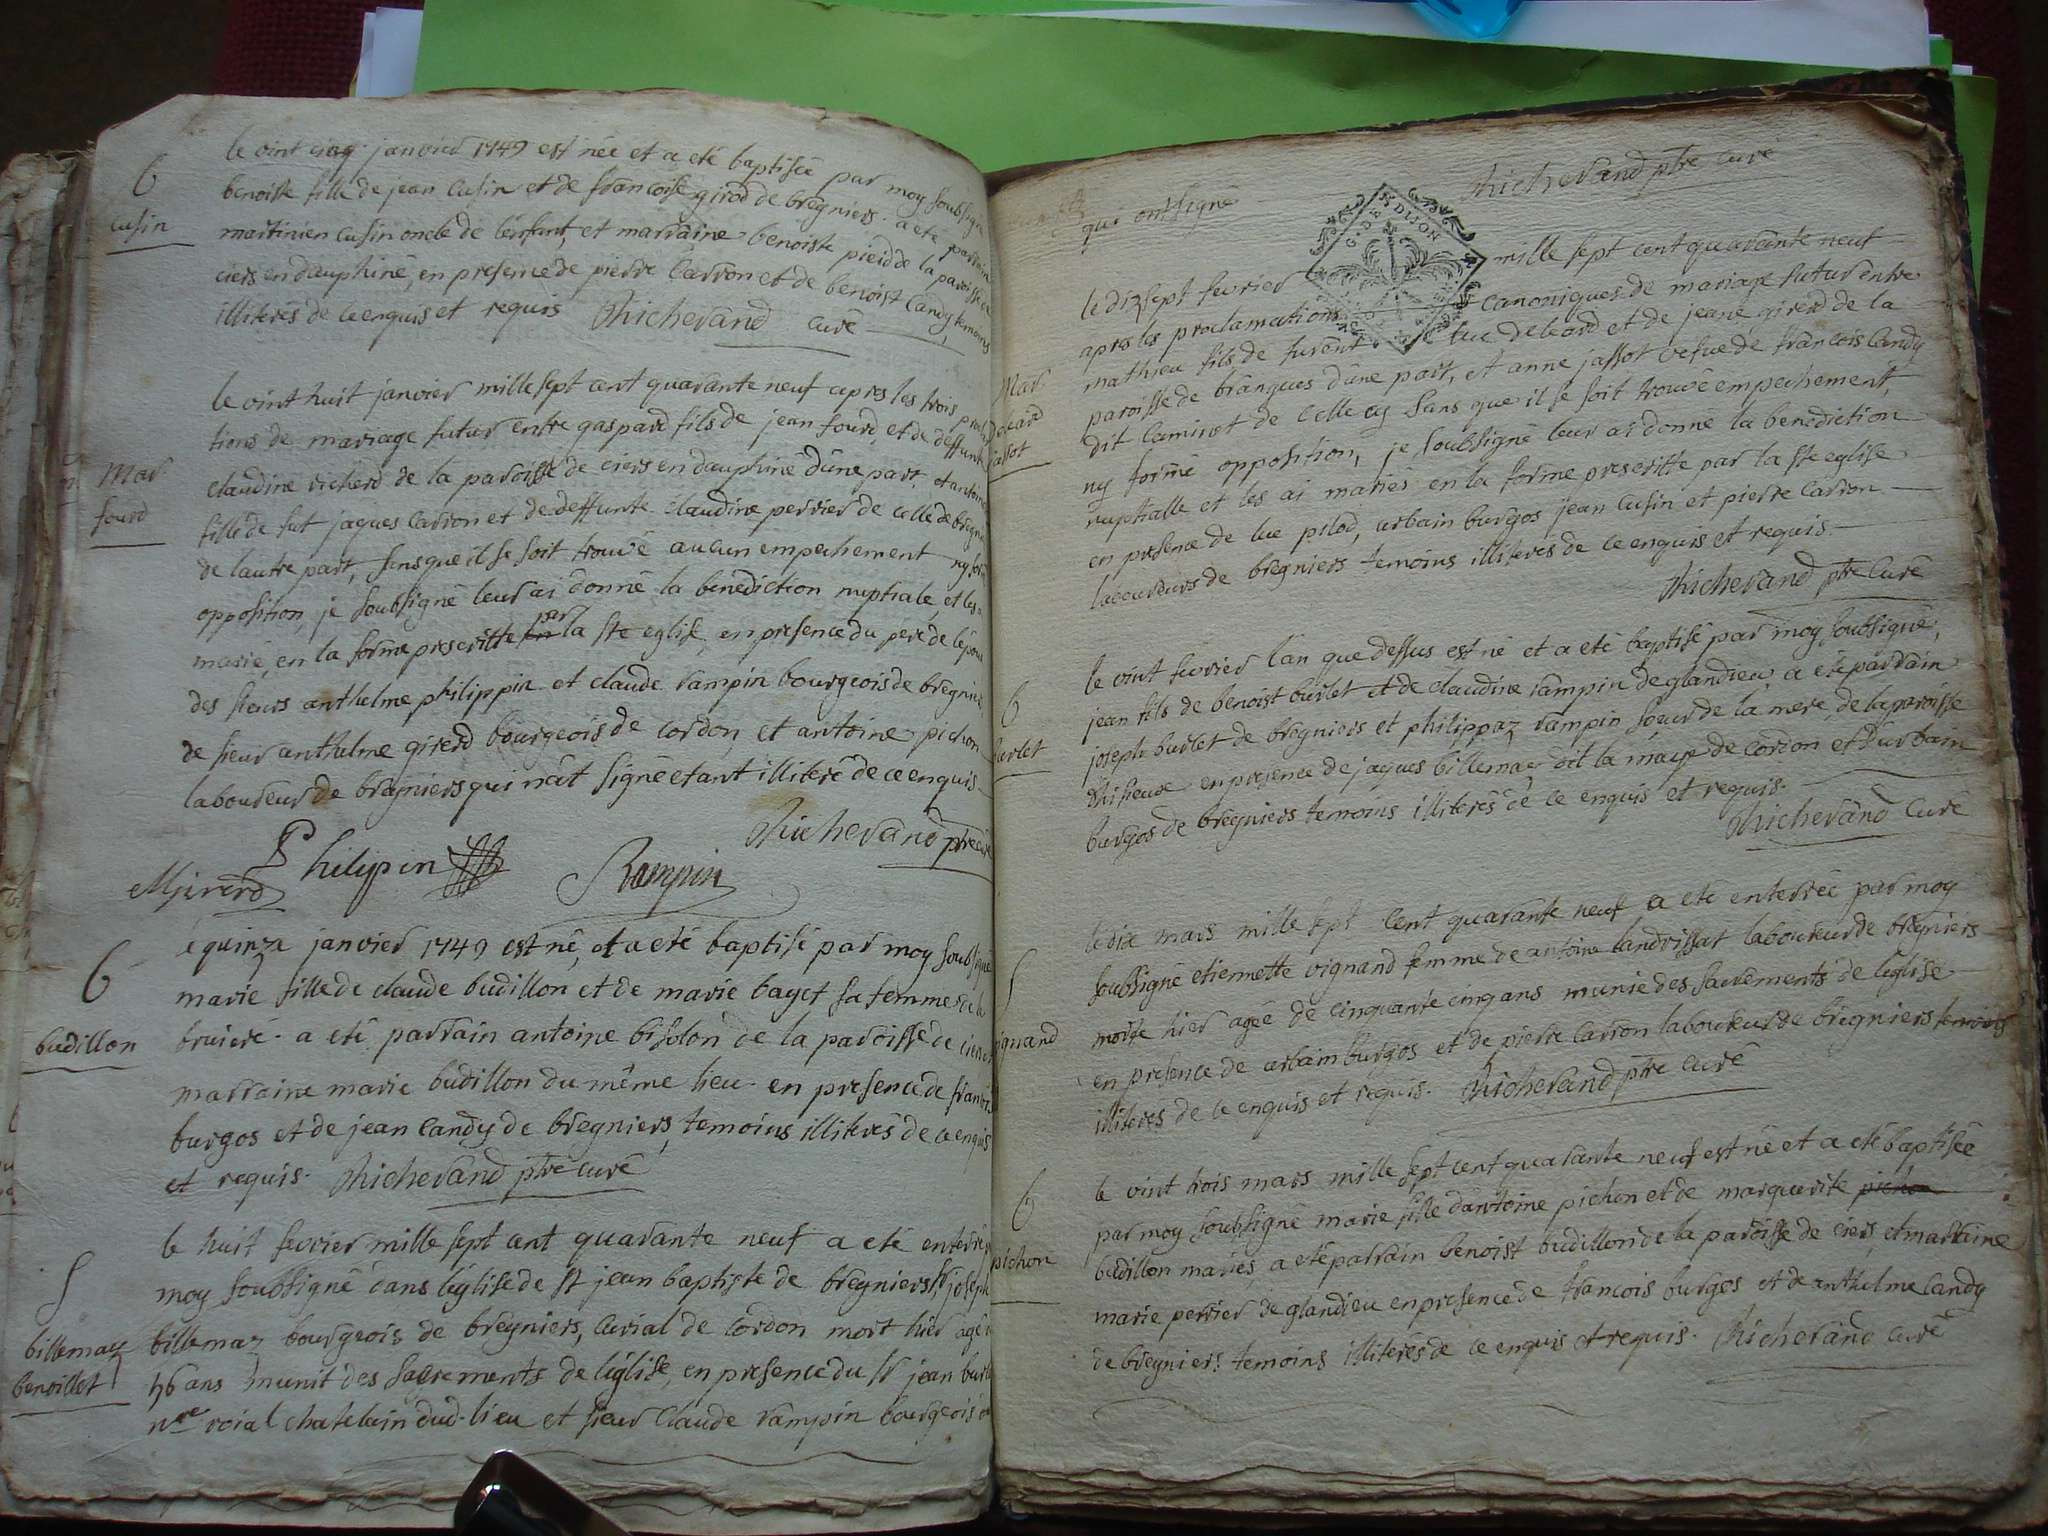 B
cusin
le vint cinq janvier 1749 est née et a eté baptisée par moy soubsigné
benoiste fille de jean cusin et de francoise girod de bregniers. a eté parrain
martinien cusin oncle de l'enfant, et marraine benoiste pieid de la paroisse de
ciers en dauphiné, en presence de pierre carron et de benoist candy temoins
illiterés de ce enquis et requis Richerand curé
Mar
fourd
le vint huit janvier mille sept cent quarante neuf apres les trois
tions de mariage futur entre gaspard fils de jean fourd, et de deffunte
claudine richerd de la paroisse de ciers en dauphiné d'une part, et antoine
fille de fut jaques carron et de deffunte claudine perrier de celle de bregnie
de lautre part, sans que il se soit trouvé aucun empechement ny formé
opposition, je soubsigné leur ai donné la benediction nuptiale, et les
marié, en la forme prescritte en par la ste eglise, en presence du pere de l'epoux
des sieurs anthelme philippin et claude rampin bourgeois de bregnier
de sieur anthelme girerd bourgeois de cordon et antoine pichon
laboureur de bregniers qui n'at signé etant illiteré de ce enquis
Richerand ptre curé
Philipin
Mgirerd
Rampin
B
budillon
e quinze janvier 1749 est né, et a eté baptisé par moy soubsigné
marie fille de claude budillon et de marie bayet sa femme de la
bruiere. a eté parrain antoine bisolon de la paroisse de ciers et
marraine marie budillon du même lieu. en presence de francois
burgos et de jean candy de bregniers, temoins illiterés de ce enquis
et requis. Richerand ptre curé
S
billemaz
benoillet
le huit fevrier mille sept cent quarante neuf a eté enterré
moy soubsigné dans l'église de st jean baptiste de bregniers sr joseph
billemaz bourgeois de bregniers, curial de cordon mort hier agé
76 ans munit des sacrements de l'église, en presence du sr jean burle
nre roial chatelain dud. lieu et sieur claude rampin bourgeois
qui ont signé
Richerand ptre curé
G. DE DIJON
Mar
deleard
jassot
le dizsept fevrier mille sept cent quarante neuf
apres les proclamations canoniques de mariage futur entre
mathieu fils de furent luc deleard et de jeane girerd de la
paroisse de brangues d'une part, et anne jassot vefue de francois candy
dit camirot de celle cy sans que il se soit trouvé empechement,
ny formé opposition, je soubsigné leur ai donné la benediction
nuptialle et les ai mariés en la forme prescritte par la ste eglise
en presence de luc pilod, urbain burgos jean cusin et pierre carron
laboureurs de bregniers temoins illiterés de ce enquis et requis.
Richerand ptre curé
B
burlet
le vint fevrier l'an que dessus est né et a eté baptisé par moy soubsigné,
jean fils de benoist burlet et de claudine rampin de glandieu, a eté parrain
joseph burlet de bregniers et philippaz rampin soeur de la mere, de la paroisse
d'isieux en presence de jaques billemaz dit la maye de cordon et d'urbain
burgos de bregniers temoins illiterés de ce enquis et requis.
Richerand curé
S
vignand
le dix mars mille sept cent quarante neuf a eté enterrée par moy
soubsigné etiennette vignand femme de antoine landrissat laboureur de bregniers
morte hier agée de cinquante cinq ans munie des sacrements de l'église
en presence de urbain burgos et de pierre carron laboureur de bregniers temoins
illiterés de ce enquis et requis. Richerand ptre curé
B
pichon
le vint trois mars mille sept cent quarante neuf est né et a eté baptisée
par moy soubsigné marie fille d'antoine pichon et de marguerite pichon
budillon mariés a eté parrain benoist budillon de la paroisse de ciers, et marraine
marie perrier de glandieu en presence de francois burgos et de anthelme candy
de bregniers temoins illiterés de ce enquis et requis. Richerand curé